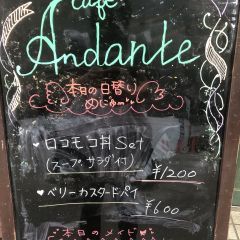 café
Andante
本日の日替り
めにゅー
♥ロコモコ丼 Set
(スープ、サラダ付)
¥1200
♥ベリーカスタードパイ
¥600
本日のメイド